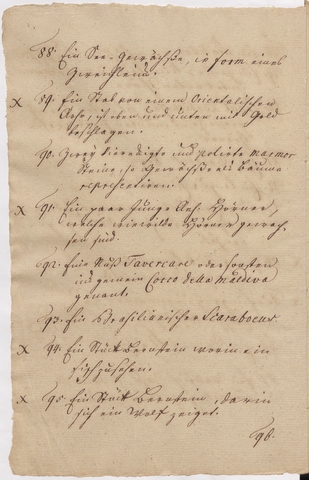 88. Ein See-Gewächße, in form eines
Zweichleins.
X 89. Ein Stab von einem Orientalischen
Rohr, ist oben und unten mit Gold
beschlagen.
90. Zwey viereckigte und polirte marmor
Steine, so Gewächße als Bäume
repræsentiren.
X 91. Ein paar junge Reh-Hörner,
welche wie wilde Hörner gewach-
sen sind.
92. Eine Nuß Tavercare oder sonsten
ins gemein Cocco della Maldiva
genant.
93. Ein Brasilianischer Scaraboeus
X 94. Ein Stück Bernstein worin ein
fisch zusehen.
X 95. Ein Stück Bernstein, darin
sich ein Wolf zeiget.
96.